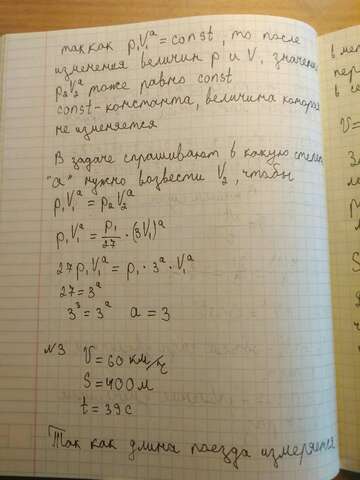 так как p₁V₁ᵃ = const, то после
изменения величин p и V, значение
p₂V₂ᵃ тоже равно const
const - константа, величина которая
не изменяется
В задаче спрашивают в какую степень
"а" нужно возвести V₂, чтобы
p₁V₁ᵃ = p₂V₂ᵃ
p₁V₁ᵃ = p₁/27 · (3V₁)ᵃ
27p₁V₁ᵃ = p₁ · 3ᵃ · V₁ᵃ
27 = 3ᵃ
3³ = 3ᵃ a = 3
№3
V = 60 км/ч
S = 400 м
t = 39 с
Так как длина поезда измеряется